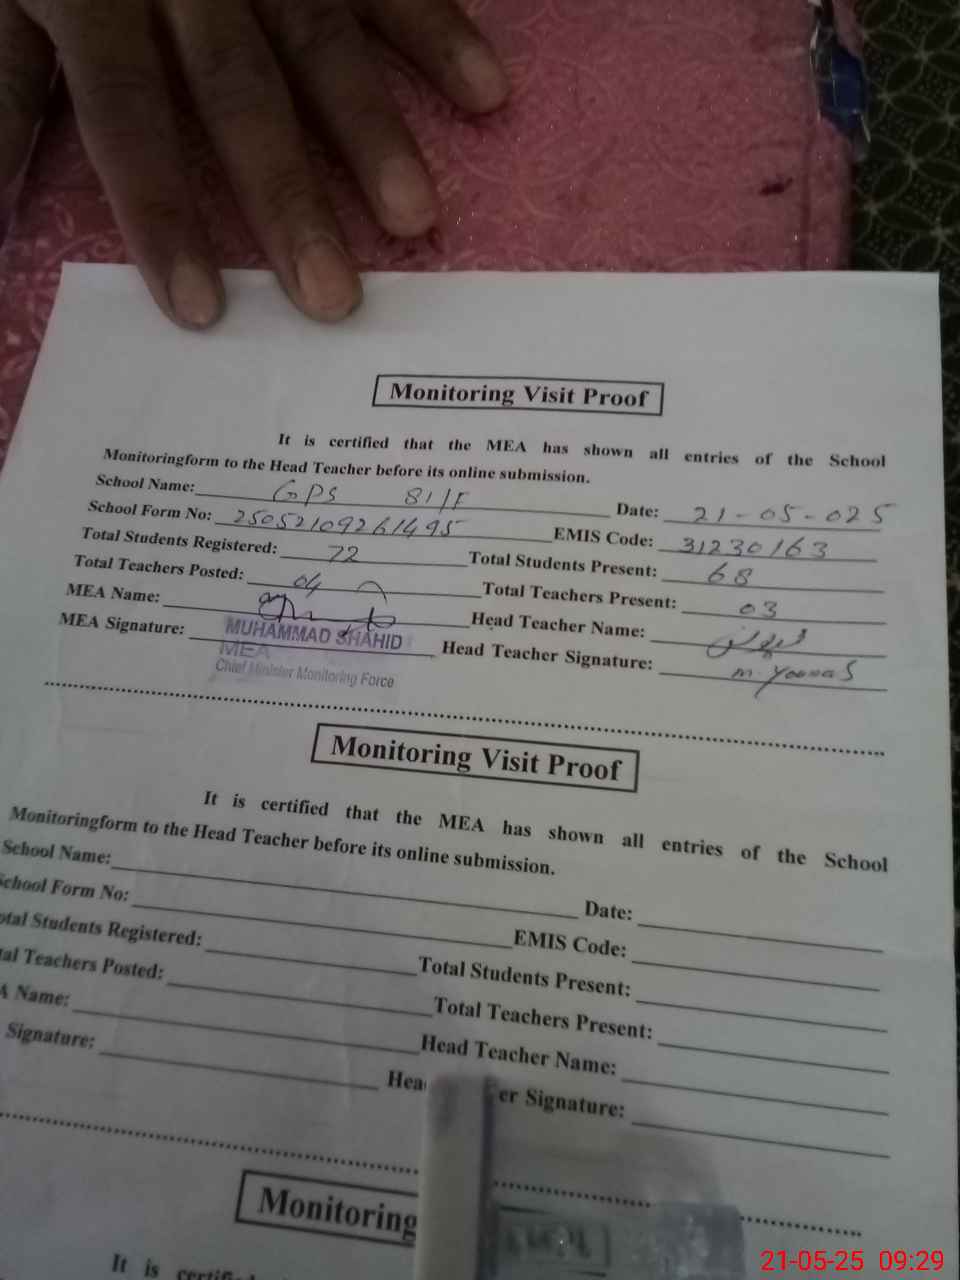 Monitoring Visit Proof
It is certified that the MEA has shown all entries of the School
Monitoringform to the Head Teacher before its online submission.
School Name: GPS 81/F Date: 21-05-025
School Form No: 25052109261495 EMIS Code: 31230163
Total Students Registered: 72 Total Students Present: 68
Total Teachers Posted: 04 Total Teachers Present: 03
MEA Name: Head Teacher Name:
MEA Signature: MUHAMMAD SHAHID Head Teacher Signature: M. Younas
MEA
Chief Minister Monitoring Force
Monitoring Visit Proof
It is certified that the MEA has shown all entries of the School
Monitoringform to the Head Teacher before its online submission.
School Name: Date:
School Form No: EMIS Code:
otal Students Registered: Total Students Present:
tal Teachers Posted: Total Teachers Present:
A Name: Head Teacher Name:
Signature: Hea er Signature:
Monitoring
It is certifi
21-05-25 09:29